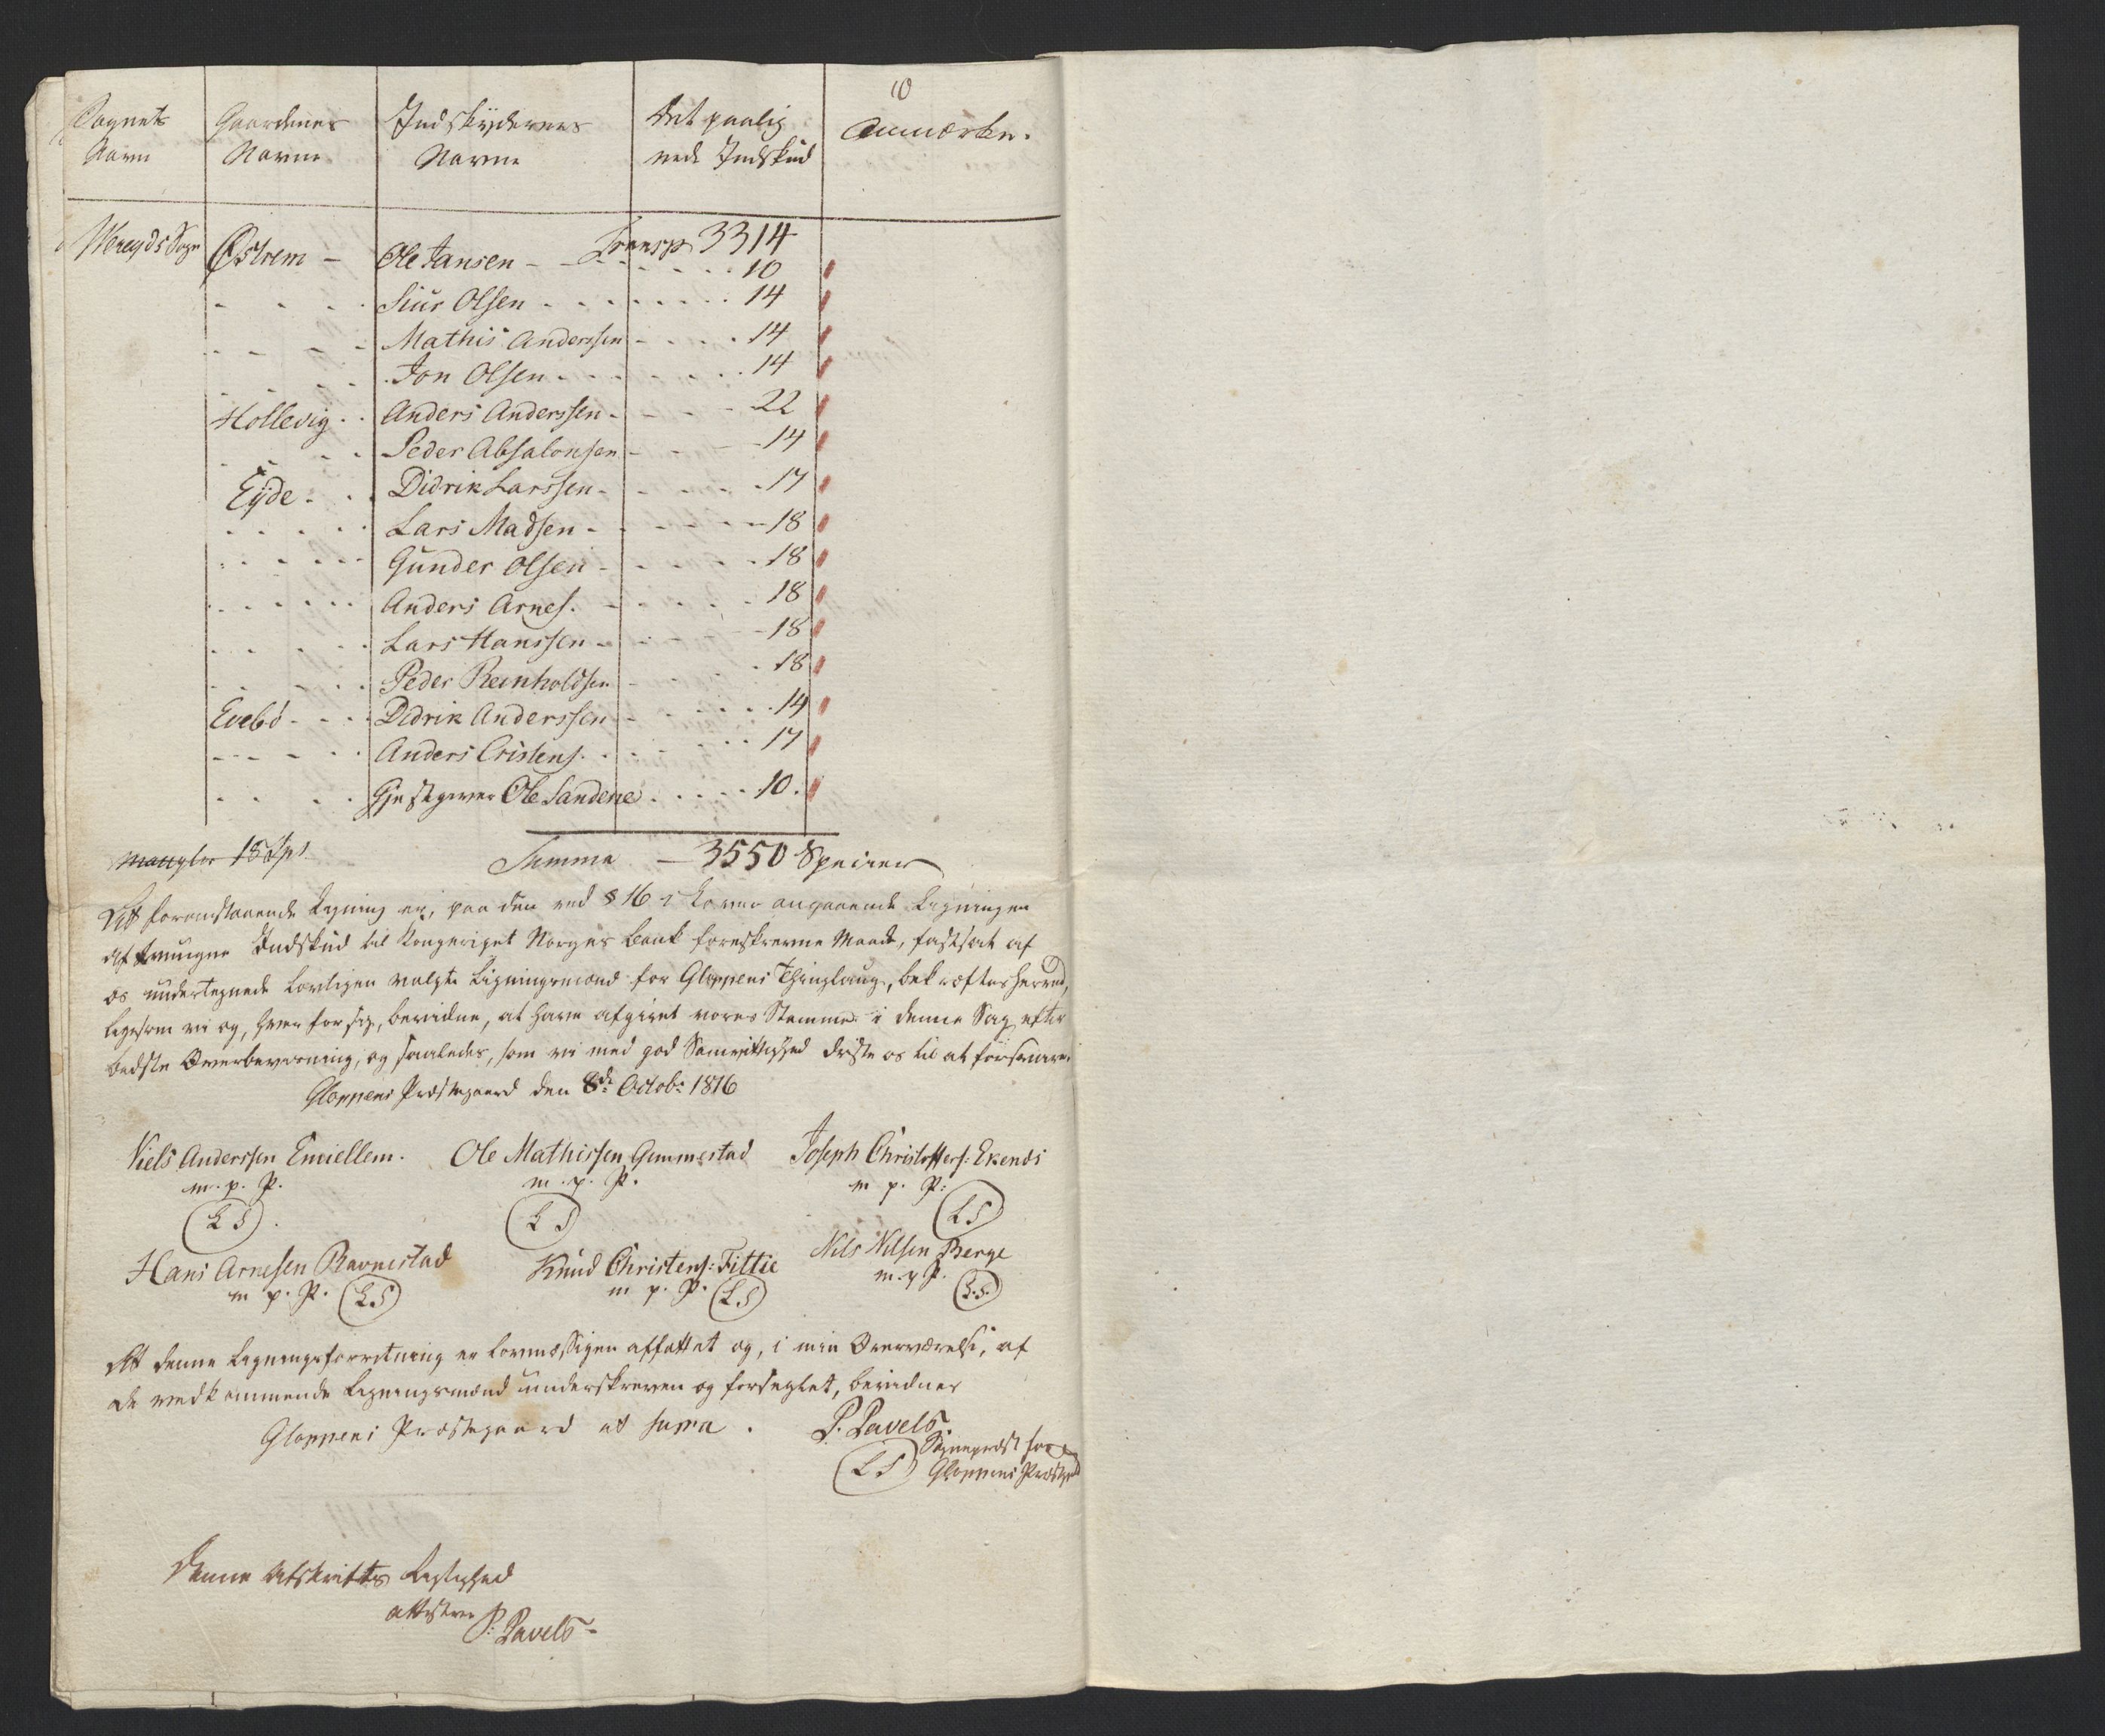 10
Sognets Navn | Gaardenes Navne | Indskydernes Navne | Det paalignede Indskud | Anmærkn.
Transp 3314
Vereyds Sogn Østrem - Ole Jansen - - 10
- - - Siur Olsen - - - 14
- - - Mathis Anderssen - - - 14
- - - Jon Olsen - - - 14
Hollevig - - Anders Anderssen - - - 22
- - - Peder Absalonsen - - - 14
Eÿde - - Didrik Larssen - - - 17
- - - Lars Madsen - - - 18
- - - Gunder Olsen - - - 18
- - - Anders Arnes. - - - 18
- - - Lars Hanssen - - - 18
- - - Peder Reinholdsen - - - 18
Evebö - - - Didrik Anderssen - - - 14
- - - Anders Cristens. - - - 17
- - - Gjestgiver Ole Sandene - - - 10.
mangler 18 Sps Summa — 3550 Specier
At foranstaaende Ligning er, paa den ved § 16 i Loven angaaende Ligningen
af tvungne Indskud til Kongeriget Norges Bank foreskrevne Maade, fastsat af
os undertegnede lovligen valgte Ligningsmænd for Gloppens Thinglaug, bekræftes herved,
ligesom vi og, hver for sig, bevidne, at have afgivet vores Stemme i denne Sag efter
bedste Overbeviisning, og saaledes, som vi med god Samvittighed driste os til at forsvare.
Gloppens Præstegaard den 8de Octobr 1816
Niels Anderssen Emiellem. Ole Mathissen Gimmestad Joseph Christoffers: Ekenæs
m. p. P. m. p. P. m p. P:
(L S). (L S) (L S)
Hans Arnesen Ravnestad Knud Christens: Fittie Nils Nilsen Berge
m p. P. (L S) m p. P. (L S) m. p. P. (L. S.)
At denne Ligningsforretning er lovmæssigen affattet og, i min Overværelse, af
de vedkommende Ligningsmænd underskreven og forseglet, bevidner
Gloppens Præstegaard ut supra. P. Pavels
Sognepræst for
(L S) Gloppens Præstegd
Denne Afskrifts Rigtighed
attesterer P: Pavels